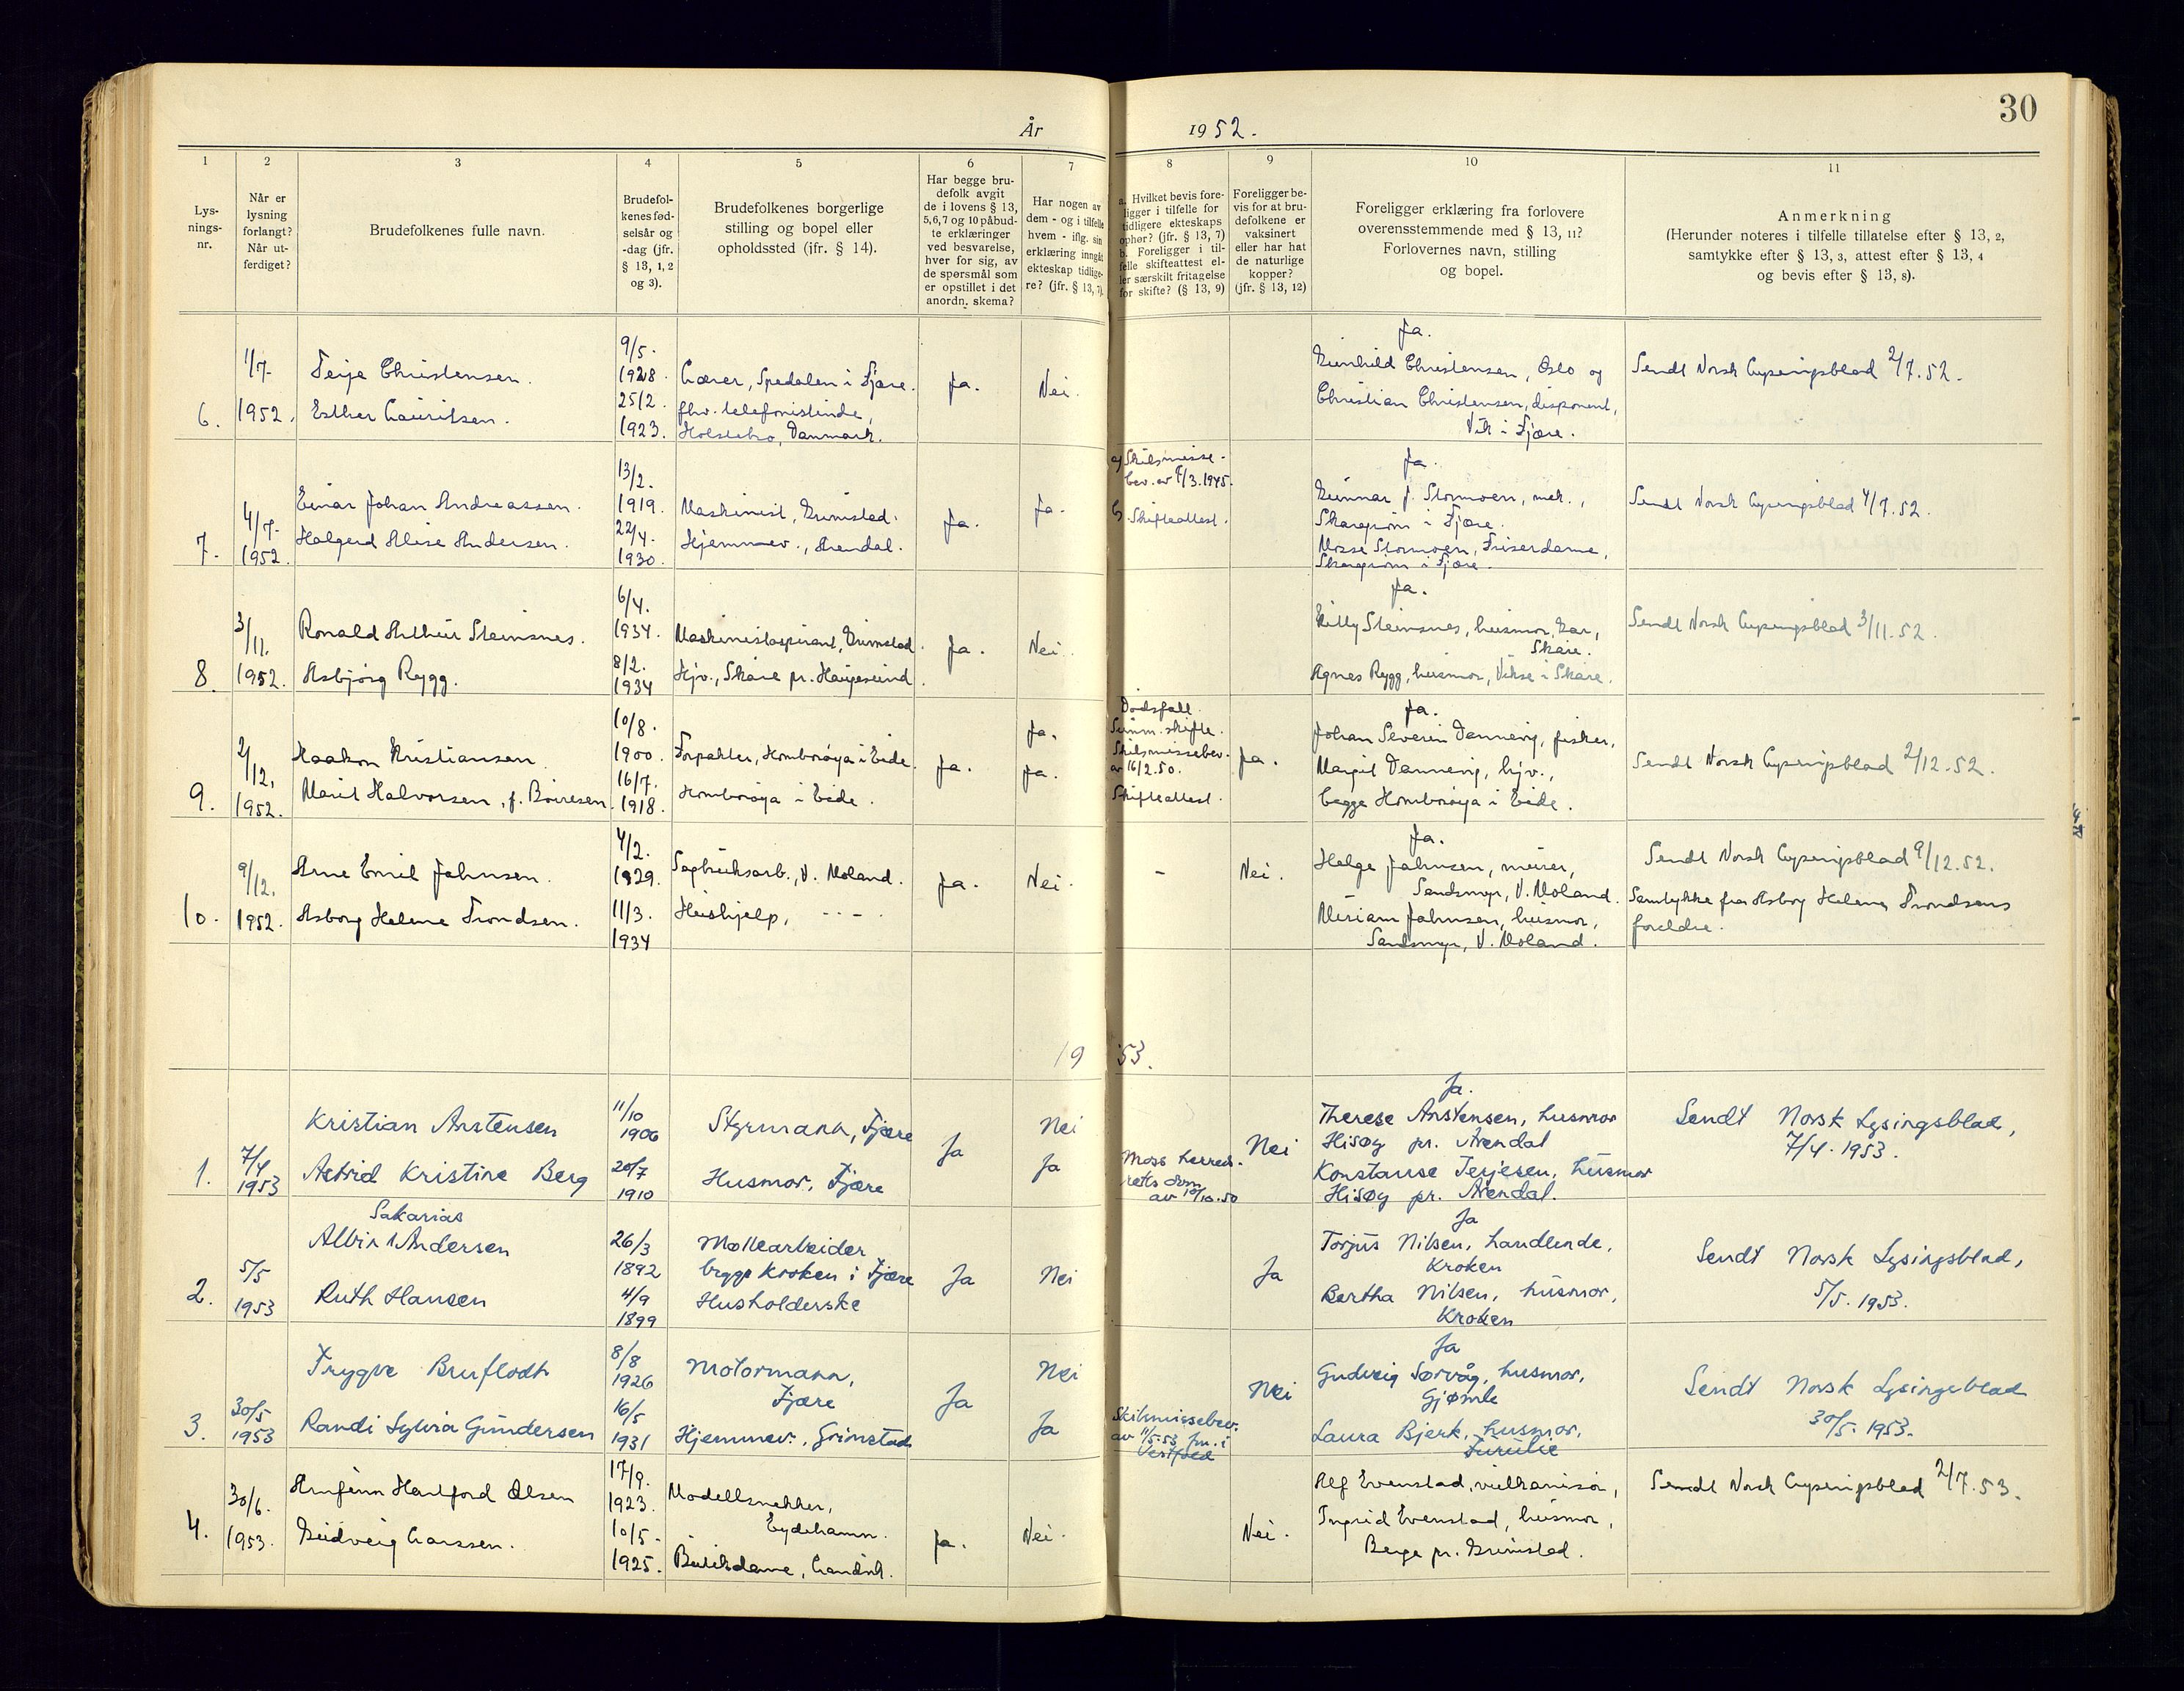 30
År 1952.
1 2 3 4 5 6 7 8 9 10 11
Lys-
nings-
nr.
Når er
lysning
forlangt?
Når ut-
ferdiget?
Brudefolkenes fulle navn.
Brudefol-
kenes fød-
selsår og
-dag (jfr.
§ 13, 1, 2
og 3).
Brudefolkenes borgerlige
stilling og bopel eller
opholdssted (jfr. § 14).
Har begge bru-
defolk avgit
de i lovens § 13,
5,6,7 og 10 påbud-
te erklæringer
ved besvarelse,
hver for sig, av
de spørsmål som
er opstillet i det
anordn. skema?
Har nogen av
dem - og i tilfelle
hvem - iflg. sin
erklæring inngåt
ekteskap tidlige-
re? (jfr. § 13, 7).
a. Hvilket bevis fore-
ligger i tilfelle for
tidligere ekteskaps
opher? (jfr. § 13, 7)
b. Foreligger i til-
felle skifteattest el-
ler særskilt fritagelse
for skifte? (§ 13, 9)
Foreligger be-
vis for at bru-
defolkene er
vaksinert
eller har hat
de naturlige
kopper?
(jfr. § 13, 12)
Foreligger erklæring fra forlovere
overensstemmende med § 13, 11?
Forlovernes navn, stilling
og bopel.
Anmerkning
(Herunder noteres i tilfelle tillatelse efter § 13, 2,
samtykke efter § 13, 3, attest efter § 13, 4
og bevis efter § 13, 8).
6.
1/7-
1952.
Terje Christensen.
Esther Lauritsen.
9/5-
1928.
25/2.
1923.
Lærer, Spedalen i Fjære.
fhv. telefonistinde,
Holstebro, Danmark.
Ja.
Nei.
Ja.
Gunhild Christensen, Oslo og
Christian Christensen, disponent,
Vik i Fjære.
Sendt Norsk Lysingsblad 2/7.52.
7.
4/7-
1952.
Einar Johan Andreassen.
Halgerd Alise Andersen.
13/2.
1919.
22/4.
1930.
Maskinist, Grimstad.
Hjemmev., Arendal.
Ja.
Ja.
a) Skilsmisse-
bev. av /3.1945.
b) Skifteattest.
Ja.
Gunnar J. Stormoen, mek.,
i Fjære.
Mosse Stormoen, Friserdame,
i Fjære.
Sendt Norsk Lysingsblad 4/7.52.
8.
3/11.
1952.
Ronald Arthur Steinsnes.
Asbjørg Rygg.
6/4.
1934.
8/2.
1934
Maskinistaspirant, Grimstad.
Hjv., Skåre pr. Haugesund.
Ja.
Nei.
Ja.
Killy Steinsnes, husmor,
Skåre.
Agnes Rygg, husmor, Vikse i Skåre.
Sendt Norsk Lysingsblad 3/11.52.
9.
2/12.
1952.
Haakon Kristiansen
Marit Halvorsen, f. Boiresen.
10/8.
1900.
16/7.
1918.
Forpakter, Homborøya i Eide.
Homborøya i Eide.
Ja.
Ja.
Ja.
Dødsfall.
Summ. skifte.
Skilsmissebev.
av 16/2.50.
Skifteattest.
Ja.
Ja.
Johan Severin Dannevig, fisker,
Margit Dannevig, hjv.,
begge Homborøya i Eide.
Sendt Norsk Lysingsblad 2/12.52.
10.
9/12.
1952.
Arne Emil Jahnsen.
Asborg Helene Trondsen.
4/2.
1929.
11/3.
1934
Sagbruksarb., V. Moland.
Hushjelp, - - - .
Ja.
Nei.
-
Nei.
Ja.
Helge Jahnsen, murer,
Sandsmyr, V. Moland.
Miriam Jahnsen, husmor,
Sandsmyr, V. Moland.
Sendt Norsk Lysingsblad 9/12.52.
Samtykke fra Asborg Helene Trondsens
foreldre.
1953.
1.
7/4
1953
Kristian Anstensen
Astrid Kristine Berg
11/10
1906
20/7
1910
Styrmann, Fjære
Husmor, Fjære
Ja
Nei
Ja
Moss herreds-
retts dom
av 10/10.50
Nei
Ja.
Therese Anstensen, husmor
Hisøy pr. Arendal
Konstanse Terjesen, husmor
Hisøy pr. Arendal.
Sendt Norsk Lysingsblad,
7/4. 1953.
2.
5/5
1953
Sakarias
Albin Andersen
Ruth Hansen
26/3
1892
4/9
1899
Møllearbeider
begge Kroken i Fjære
Husholderske
Ja
Nei
Ja
Ja
Torjus Nilsen, handlende,
Kroken
Bertha Nilsen, husmor,
Kroken
Sendt Norsk Lysingsblad,
5/5. 1953.
3.
30/5
1953
Trygve Bruflodt
Randi Sylvia Gundersen
8/8
1926
16/5
1931
Motormann,
Fjære
Hjemmev., Grimstad
Ja
Nei
Ja
Skilsmissebev.
av 11/5-53 fm. i
Vestfold
Nei
Ja
Gudveig Sørvåg, husmor,
Gjømle
Laura Bjerk, husmor,
Furulie
Sendt Norsk Lysingsblad
30/5. 1953.
4.
30/6.
1953.
Arnfinn Hartford Olsen
Gudveig Larssen.
17/9.
1923.
10/5-
1925.
Modellsnekker,
Eydehamn.
Butikkdame, Landvik.
Ja.
Nei.
Nei.
Alf Evenstad, vulkanisør,
Ingrid Evenstad, husmor,
Berge pr. Grimstad.
Sendt Norsk Lysingsblad 2/7.53.